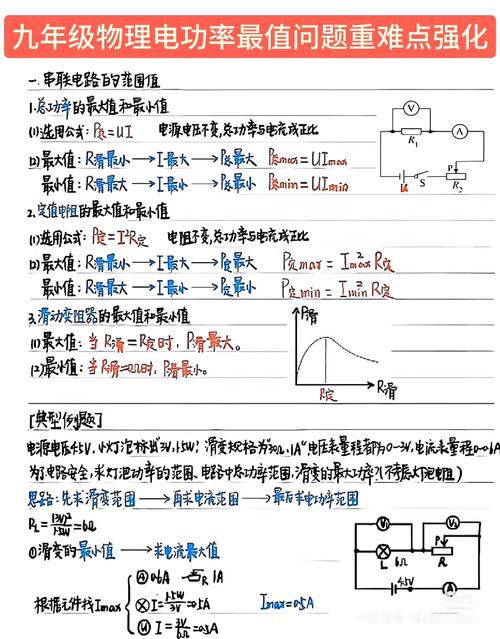 九年级物理电功率最值问题重难点强化
一.串联电路的范围值
1.总功率的最大值和最小值
(1)选用公式：P总=UI 电源电压不变，总功率与电流成正比
(2)最大值：R滑最小→I最大→P总最大 P总max=UImax
最小值：R滑最大→I最小→P总最小 P总min=UImin
V
R1
A
U
S
P
R2
2.定值电阻的最大值和最小值
(1)选用公式：P定=I²R定 电阻不变，总功率与电流成正比
(2)最大值：R滑最小→I最大→P定最大 P定max=I²maxR定
最小值：R滑最大→I最小→P定最小 P定min=I²minR定
3.滑动变阻器的最大值和最小值
(1)最大值：当R滑=R定时，P滑最大。
(2)最小值：当R滑=0Ω时，P滑最小。
P滑
R定
R滑
[典型例题]
电源电压4.5V，小灯泡标"3V，1.5W；滑变规格为"30Ω，1A"电压表量程都为0~3V，电流表量程0~0.6A
为了电路安全，求灯泡功率的范围、电路中总功率范围，滑变的最大功率?(不考虑灯泡电阻)
思路：先求滑变范围→再求电流范围→最后求电功率范围
RL=(3V)²/1.5W=6Ω
①滑变的最小值→求电流最大值
根据元件找Imax
A 0.6A R 1A
I=1.5W/3V=0.5A
V I=3V/6Ω=0.5A
Imax=0.5A
V1
V2
L 6Ω
P
R
4.5V
A